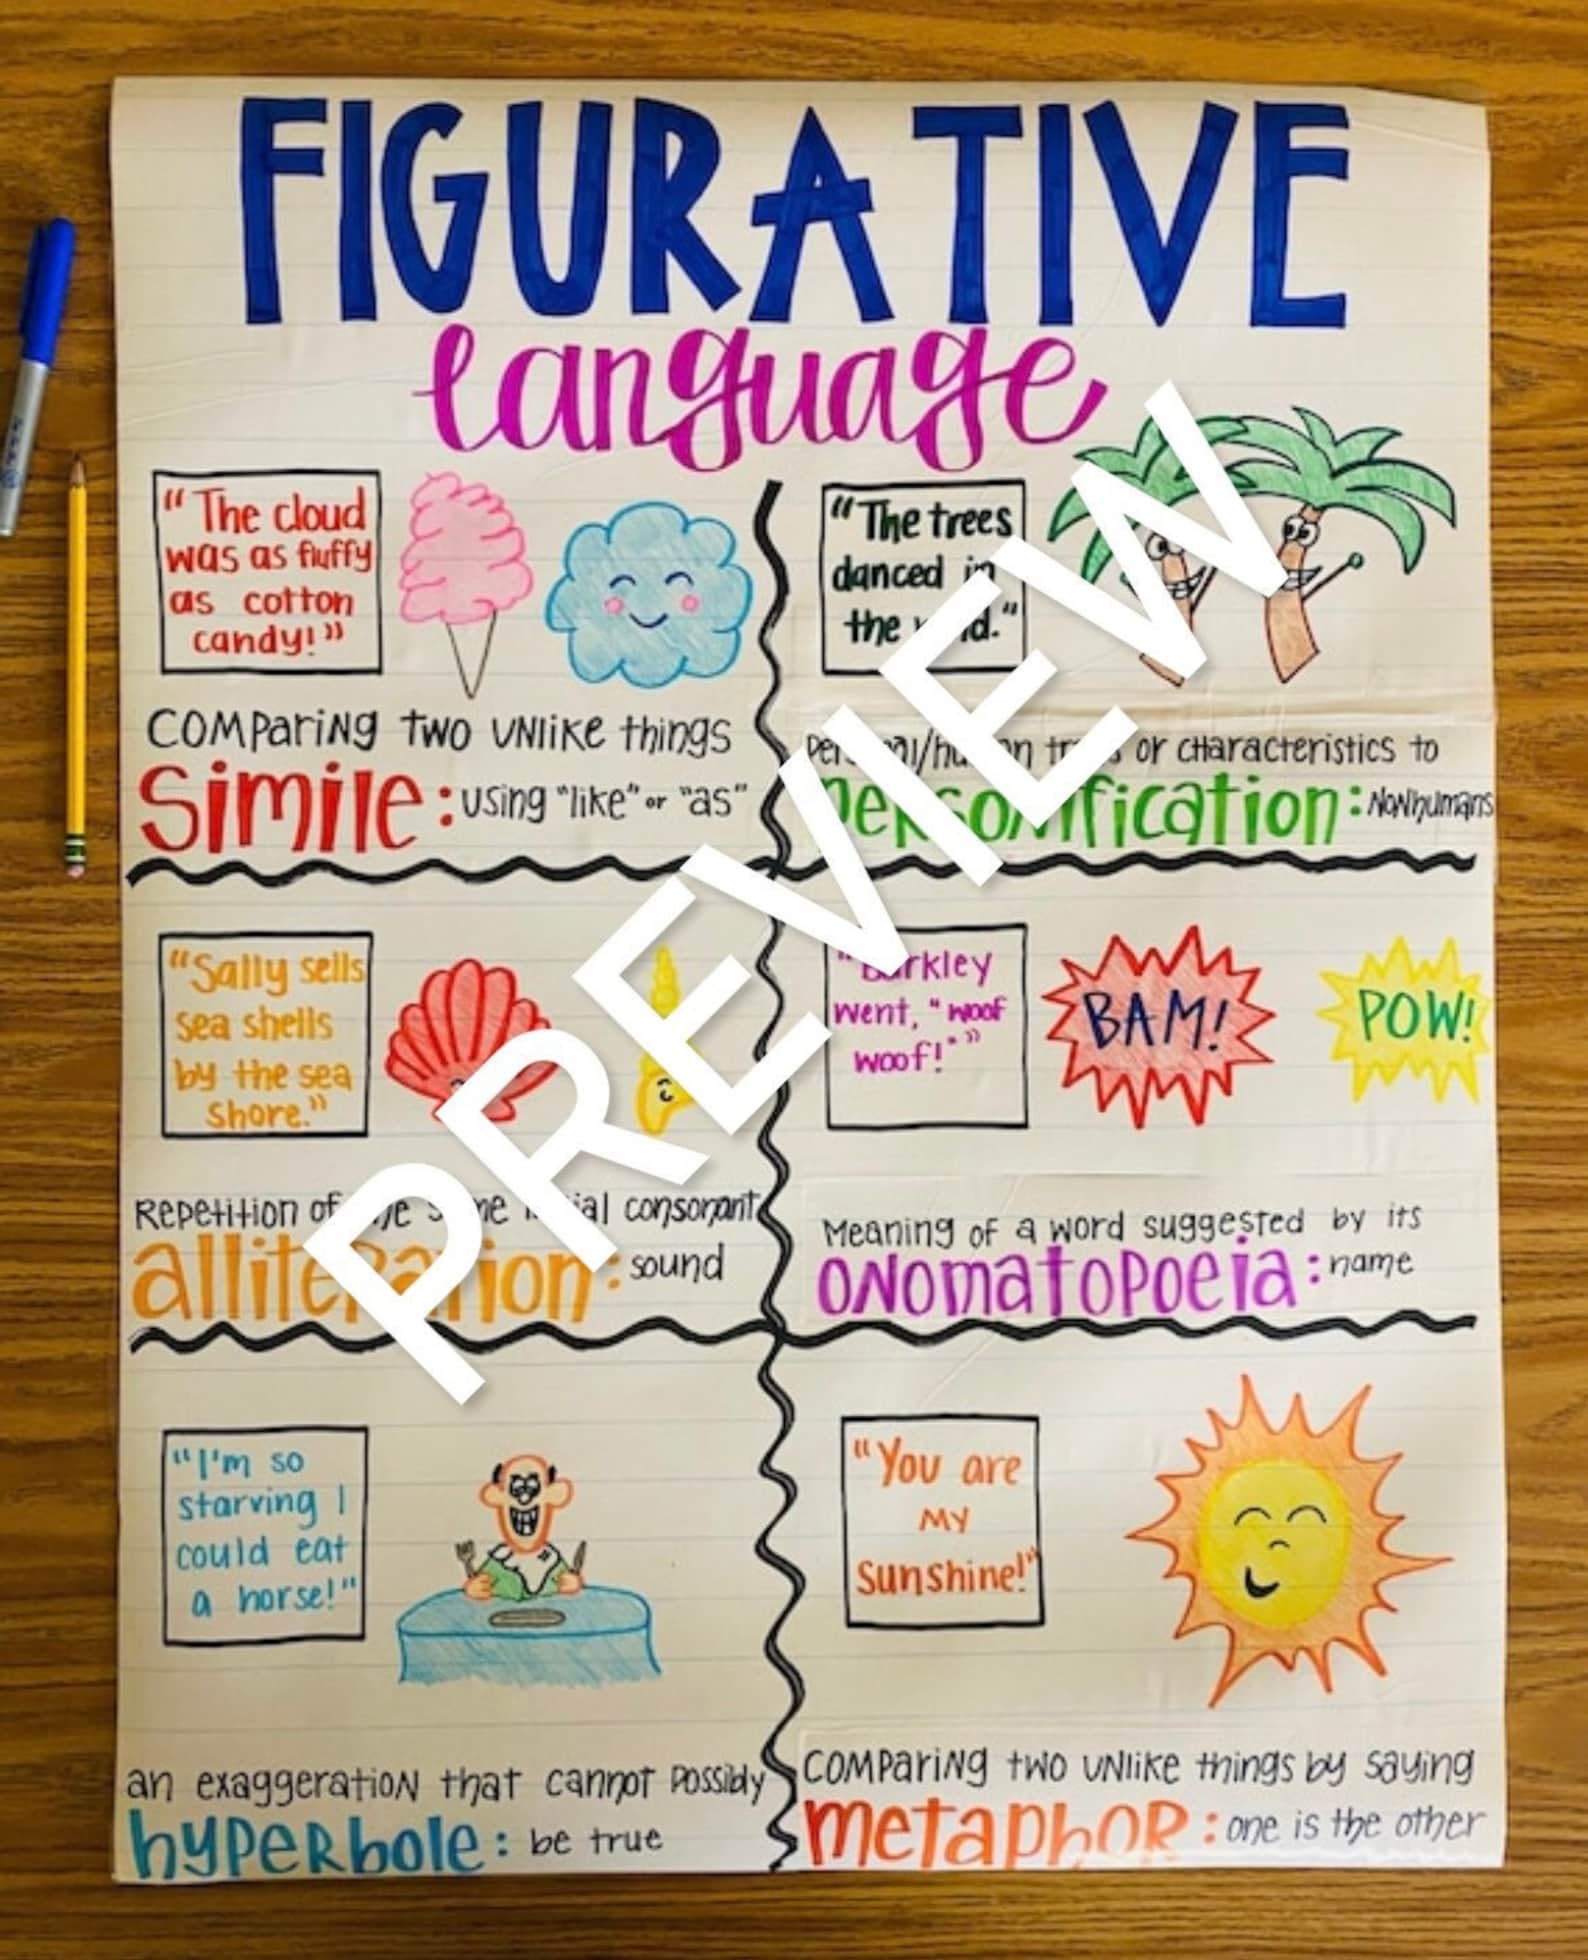 FIGURATIVE
language
"The cloud
was as fluffy
as cotton
candy!"
COMPARING TWO UNLIKE things
Simile: using "like" or "as"
"The trees
danced in
the
or CHARACTERISTICS to
Personification: NONhumans
"Sally sells
sea shells
by the sea
shore."
REPETITION of consonant
alliteration: sound
"Barkley
went, "woof
woof!""
BAM!
POW!
MEANING OF a WORD suggested by its
ONOMATOPOEIA: name
"I'm so
starving I
could eat
a horse!"
an exaggeration that cannot possibly
hyperbole: be true
"You are
MY
sunshine!"
COMPARING TWO UNLIKE things by saying
METAPHOR: one is the other
PREVIEW